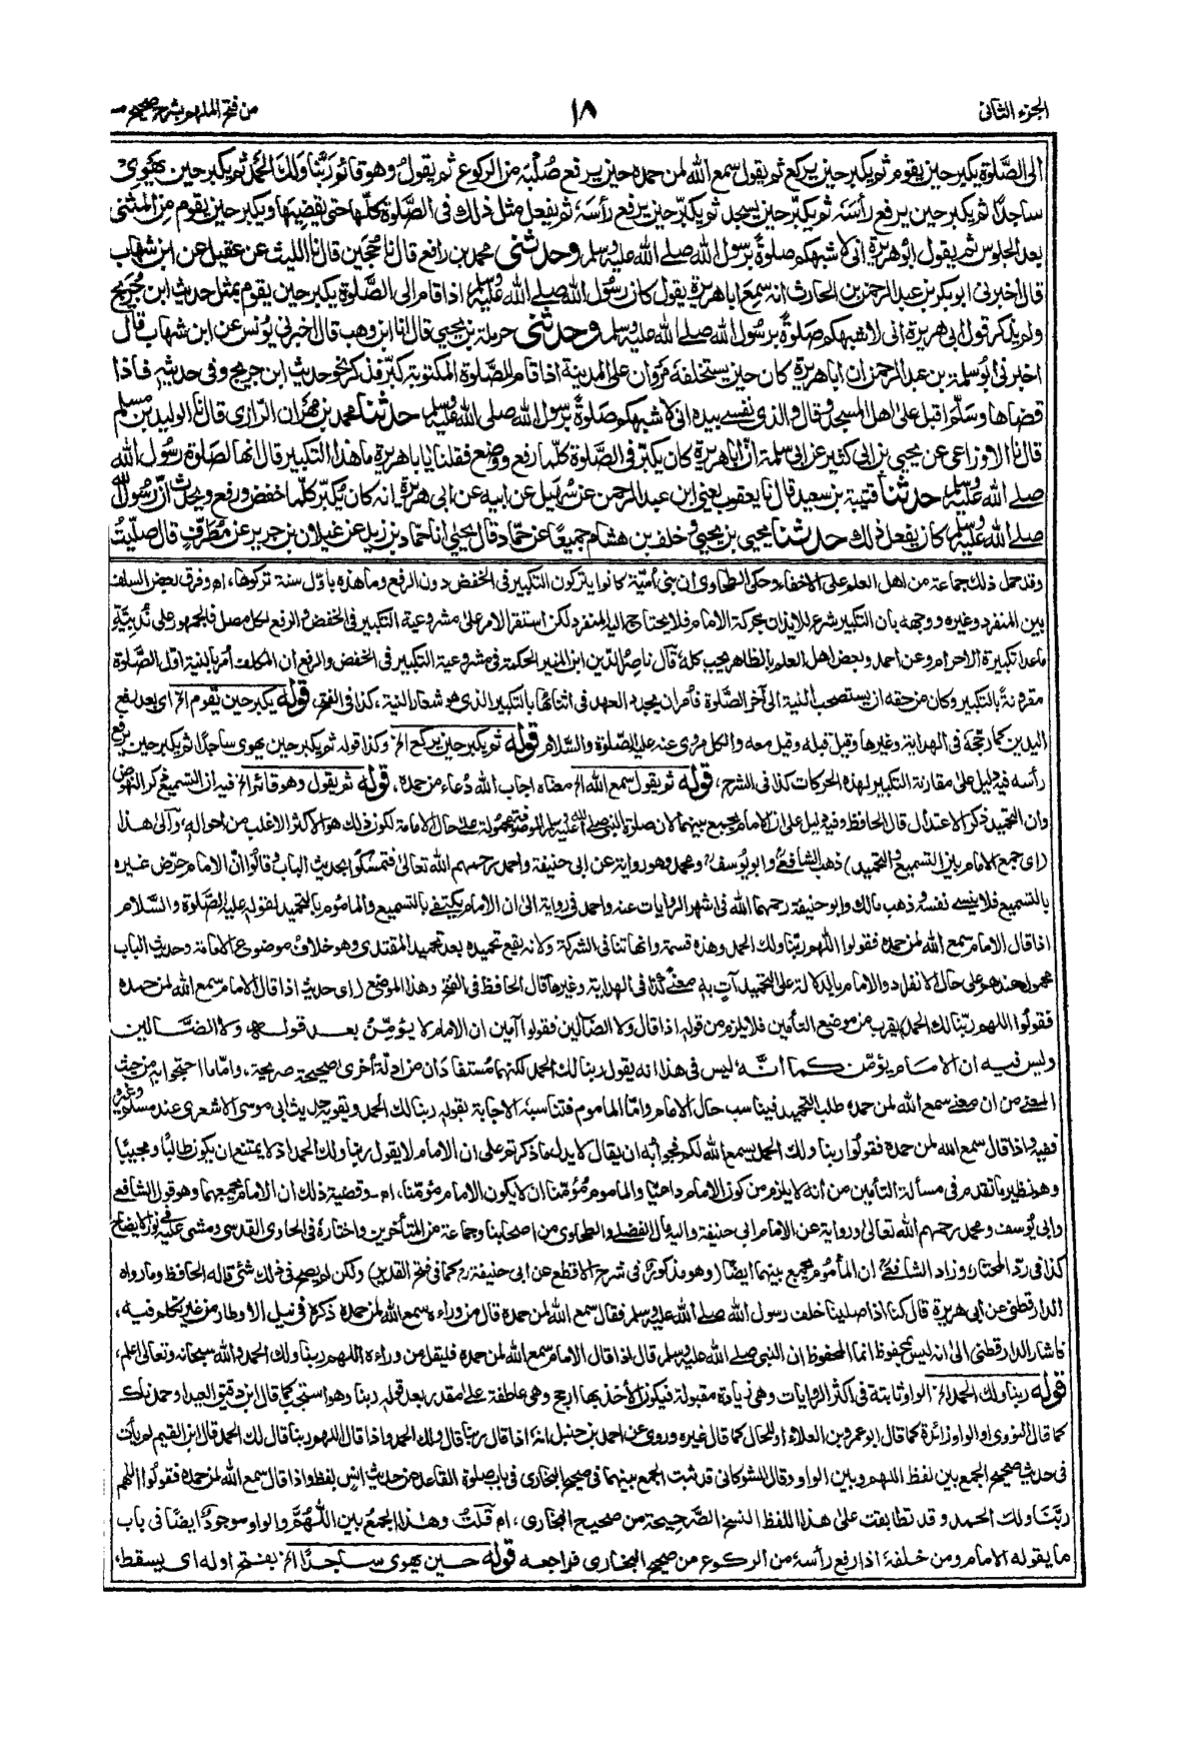 الجزء الثاني
١٨
من فتح الملهم بشرح صحيح م
الى الصلوة يكبر حين يقوم ثم يكبر حين يركع ثم يقول سمع الله لمن حمده حين يرفع صلبه من الركوع ثم يقول وهو قائم ربنا ولك الحمد ثم يكبر حين يهوى
ساجدا ثم يكبر حين يرفع رأسه ثم يكبر حين يسجد ثم يكبر حين يرفع رأسه ثم يفعل مثل ذلك فى الصلوة كلها حتى يقضيها ويكبر حين يقوم من المثنى
بعد الجلوس ثم يقول ابو هريرة انى لاشبهكم صلوة برسول الله صلى الله عليه وسلم وحدثنى محمد بن رافع قال نا حجين قال نا الليث عن عقيل عن ابن شهاب
قال اخبرنى ابو بكر بن عبد الرحمن بن الحارث انه سمع ابا هريرة يقول كان رسول الله صلى الله عليه وسلم اذا قام الى الصلوة يكبر حين يقوم بمثل حديث ابن جريج
ولم يذكر قول ابى هريرة انى لاشبهكم صلوة برسول الله صلى الله عليه وسلم وحدثنى حرملة بن يحيى قال انا ابن وهب قال اخبرنى يونس عن ابن شهاب قال
اخبرنى ابو سلمة بن عبد الرحمن ان ابا هريرة كان حين يستخلفه مروان على المدينة اذا قام للصلوة المكتوبة كبر فذكر نحو حديث ابن جريج وفى حديثه فاذا
قضاها وسلم اقبل على اهل المسجد وقال والذى نفسى بيده انى لاشبهكم صلوة برسول الله صلى الله عليه وسلم حدثنا محمد بن مهران الرازى قال نا الوليد بن مسلم
قال نا الاوزاعى عن يحيى بن ابى كثير عن ابى سلمة ان ابا هريرة كان يكبر فى الصلوة كلما رفع ووضع فقلنا يا ابا هريرة ما هذا التكبير قال انها لصلوة رسول الله
صلى الله عليه وسلم حدثنا قتيبة بن سعيد قال نا يعقوب يعنى ابن عبد الرحمن عن سهيل عن ابيه عن ابى هريرة انه كان يكبر كلما خفض ورفع ويحدث ان رسول الله
صلى الله عليه وسلم كان يفعل ذلك حدثنا يحيى بن يحيى وخلف بن هشام جميعا عن حماد قال يحيى انا حماد بن زيد عن غيلان بن جرير عن مطرف قال صليت
وقد حمل ذلك جماعة من اهل العلم على الاخفاء وحكى الطحاوى ان بنى امية كانوا يتركون التكبير فى الخفض دون الرفع وما هذه باول سنة تركوها، اه وفرق بعض السلف
بين المنفرد وغيره ووجهه بأن التكبير شرع للايذان بحركة الامام فلا يحتاج اليه المنفرد لكن استقر الامر على مشروعية التكبير فى الخفض والرفع لكل مصل فالجمهور على ندبية
ما عدا تكبيرة الاحرام وعن احمد وبعض اهل العلم بالظاهر يجب كله، قال ناصر الدين ابن المنير الحكمة فى مشروعية التكبير فى الخفض والرفع ان المكلف أمر بالنية اول الصلوة
مقرونة بالتكبير وكان من حقه ان يستصحب النية الى آخر الصلوة فأمر ان يجدد العهد فى اثنائها بالتكبير الذى هو شعار النية، كذا فى الفتح، قوله يكبر حين يقوم الخ اى بعد رفع
اليدين كما رجحه فى الهداية وغيرها وقيل قبله وقيل معه والكل مروى عنه عليه الصلوة والسلام قوله ثم يكبر حين يركع الخ وكذا قوله ثم يكبر حين يهوى ساجدا ثم يكبر حين يرفع
رأسه فيه دليل على مقارنة التكبير لهذه الحركات كذا فى الشرح، قوله ثم يقول سمع الله الخ معناه اجاب الله دعاء من حمده، قوله ثم يقول وهو قائم الخ فيه ان التسميع ذكر النهوض
وان التحميد ذكر الاعتدال قال الحافظ وفيه دليل على ان الامام يجمع بينهما لان صلوة النبى صلى الله عليه وسلم الموصوفة محمولة على حال الامامة لكون ذلك هو الاكثر الاغلب من احواله، والى هذا
(اى جمع الامام بين التسميع والتحميد) ذهب الشافعى وابو يوسف ومحمد وهو رواية عن ابى حنيفة واحمد رحمهم الله تعالى فتمسكوا بحديث الباب وقالوا ان الامام حرض غيره
بالتسميع فلا ينسى نفسه، وذهب مالك وابو حنيفة رحمهما الله فى اشهر الروايات عنه واحمد فى رواية الى ان الامام يكتفى بالتسميع والماموم بالتحميد لقوله عليه الصلوة والسلام
اذا قال الامام سمع الله لمن حمده فقولوا اللهم ربنا ولك الحمد وهذه قسمة وانها تنافى الشركة ولانه يقع تحميده بعد تحميد المقتدى وهو خلاف موضوع الامامة وحديث الباب
محمول عندهم على حال الانفراد والامام بالدلالة على التحميد آت به معنى كذا فى الهداية وغيرها قال الحافظ فى الفتح وهذا الموضع (اى حديث اذا قال الامام سمع الله لمن حمده
فقولوا اللهم ربنا لك الحمد) يقرب من موضع التأمين فلا يلزم من قوله اذا قال ولا الضالين فقولوا آمين ان الامام لا يؤمن بعد قوله، ولا الضالين
وليس فيه ان الامام يؤمن كما انه ليس فى هذا انه يقول ربنا لك الحمد لكنهما مستفادان من ادلة أخرى صحيحة صريحة، واما ما احتجوا به من حيث
المعنى من ان معنى سمع الله لمن حمده طلب التحميد فيناسب حال الامام واما الماموم فتناسبه الاجابة بقوله ربنا لك الحمد ويقويه حديث ابى موسى الاشعرى عند مسلم وغيره
ففيه واذا قال سمع الله لمن حمده فقولوا ربنا ولك الحمد يسمع الله لكم فجوابه ان يقال لا يدل ما ذكرتم على ان الامام لا يقول ربنا ولك الحمد اذ لا يمتنع ان يكون طالبا ومجيبا
وهو نظير ما تقدم فى مسألة التأمين من انه لا يلزم من كون الامام داعيا والماموم مؤمنا ان لا يكون الامام مؤمنا، اه وقضية ذلك ان الامام يجمعهما وهو قول الشافعى
وابى يوسف ومحمد رحمهم الله تعالى ورواية عن الامام ابى حنيفة واليه مال الفضلى والطحاوى من اصحابنا وجماعة من المتأخرين واختاره فى الحاوى القدسى ومشى عليه فى نور الايضاح
كذا فى رد المحتار، وزاد الشافعى ان المأموم يجمع بينهما ايضا (وهو مذكور فى شرح الاقطع عن ابى حنيفة كما فى فتح القدير) ولكن لم يصح فى ذلك شئ قاله الحافظ وما رواه
الدارقطنى عن ابى هريرة قال كنا اذا صلينا خلف رسول الله صلى الله عليه وسلم فقال سمع الله لمن حمده قال من وراءه سمع الله لمن حمده ذكره فى نيل الاوطار من غير تكلم فيه،
فاشار الدارقطنى الى انه ليس بمحفوظ انما المحفوظ ان النبى صلى الله عليه وسلم قال اذا قال الامام سمع الله لمن حمده فليقل من وراءه اللهم ربنا ولك الحمد والله سبحانه وتعالى اعلم،
قوله ربنا ولك الحمد الخ الواو ثابتة فى اكثر الروايات وهى زيادة مقبولة فيكون الأخذ بها ارجح وهى عاطفة على مقدر بعد قوله ربنا وهو استجب كما قال ابن دقيق العيد او حمدناك
كما قال النووى او الواو زائدة كما قال ابو عمرو بن العلاء او للحال كما قال غيره وروى عن احمد بن حنبل انه اذا قال ربنا قال ولك الحمد واذا قال اللهم ربنا قال لك الحمد قال ابن القيم لم يأت
فى حديث صحيح الجمع بين لفظ اللهم وبين الواو وقال الشوكانى قد ثبت الجمع بينهما فى صحيح البخارى فى باب صلوة القاعد من حديث انس بلفظ واذا قال سمع الله لمن حمده فقولوا اللهم
ربنا ولك الحمد وقد تطابقت على هذا اللفظ النسخ الصحيحة من صحيح البخارى، اه قلت وهذا الجمع بين اللهم والواو موجود ايضا فى باب
ما يقوله الامام ومن خلفه اذا رفع رأسه من الركوع من صحيح البخارى فراجعه قوله حين يهوى ساجدا الخ بفتح اوله اى يسقط،